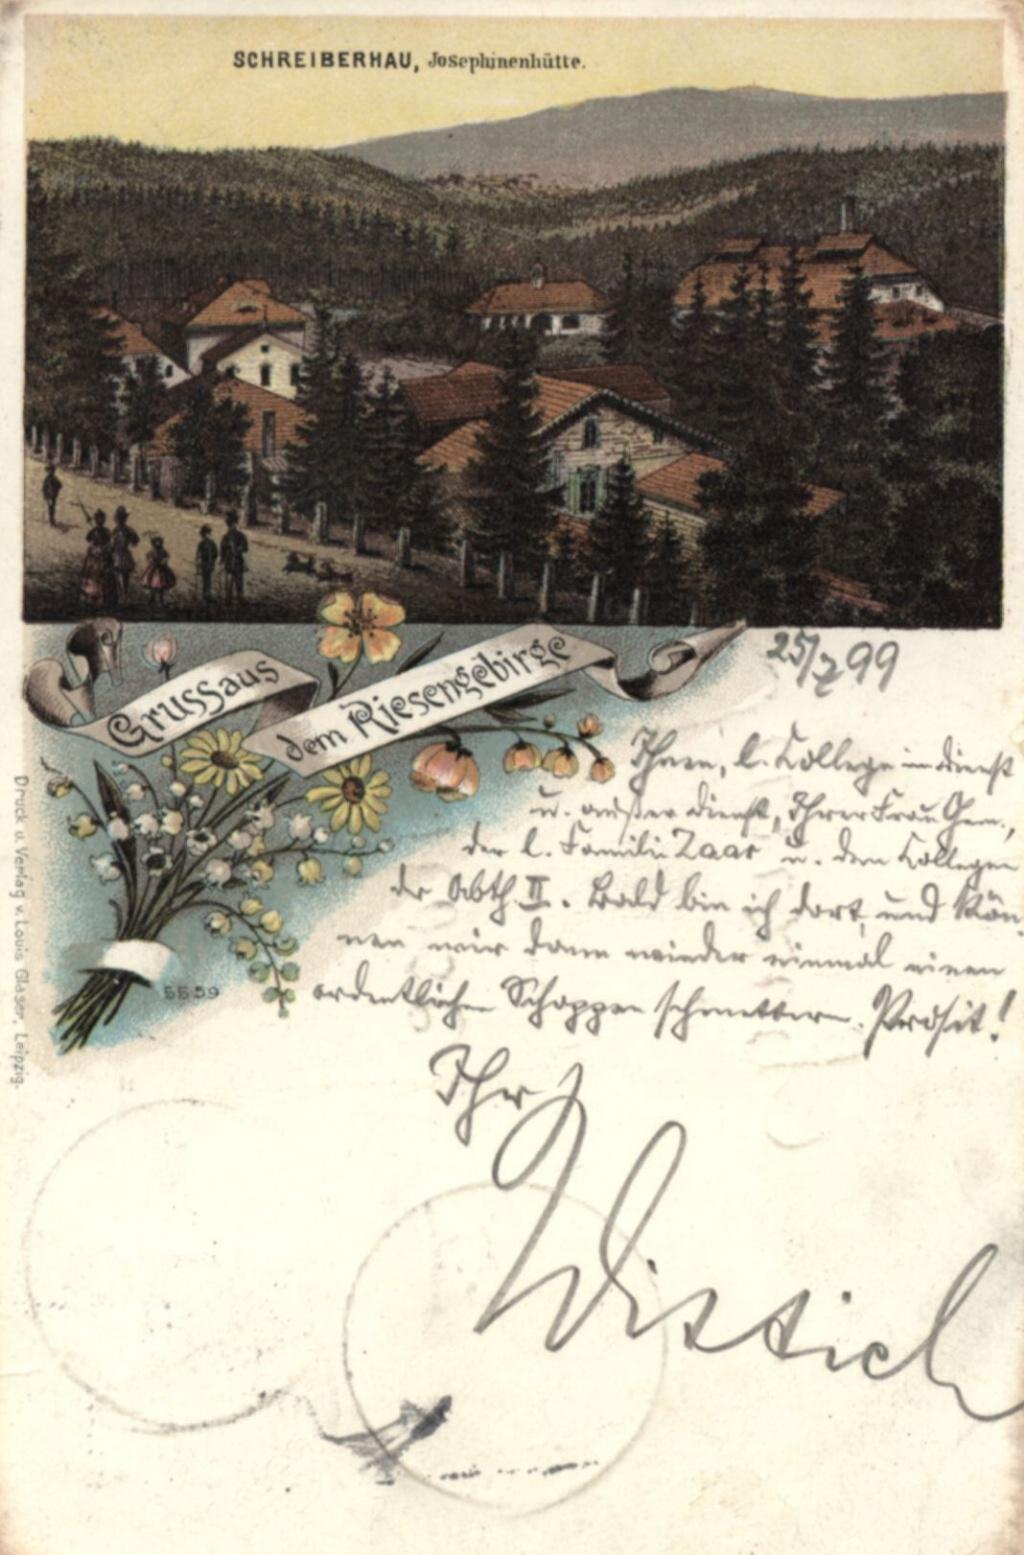 SCHREIBERHAU, Josephinenhütte.
Gruss aus
dem Riesengebirge
25/7 99
Ihnen, l. College in dienst
u. außer dienst, Ihrer Frau Gem.,
der l. Familie Zaar u. den Collegen
der Abth II. Bald bin ich dort, und kön-
nen wir dann wieder einmal einen
ordentlichen Schoppen schmettern. Prosit!
Ihr
5539
Druck u. Verlag v. Louis Glaser, Leipzig.